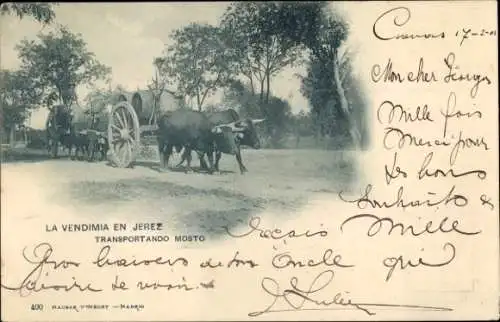 17-2-01
Mon cher Georges
Mille fois
merci pour
tes bons
souhaits
reçois mille
LA VENDIMIA EN JEREZ
TRANSPORTANDO MOSTO
Gros baisers de ton Oncle qui
désire de voir.
Julien
400 HAUSER Y MENET - MADRID